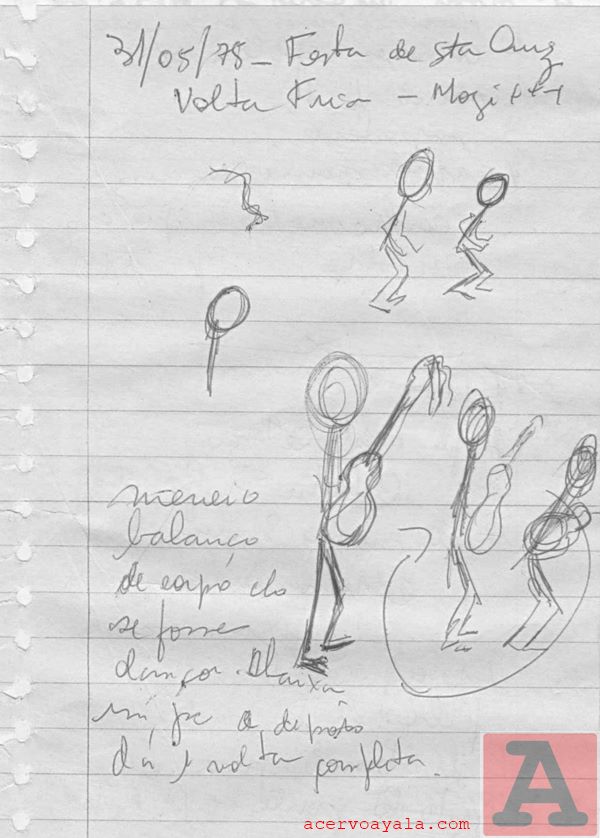 31/05/78 - Festa de Sta Cruz
Volta Fria - Mogi
meneio
balanço
de corpo cdo
se fosse
dançar. Abaixa
um pé e depois
dá 1 volta completa.
A
acervoayala.com